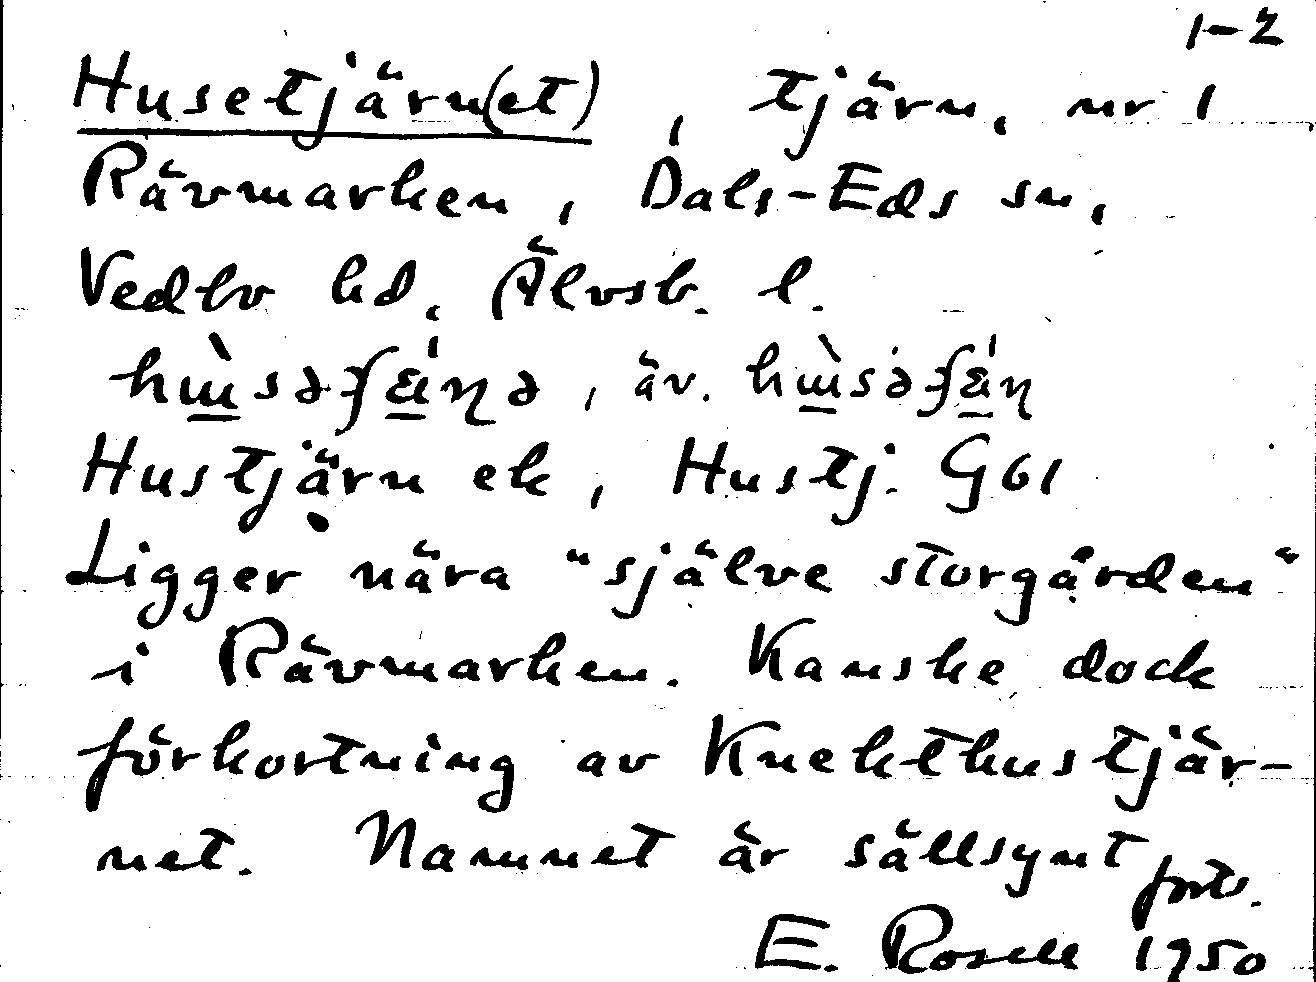 1-2
Husetjärn(et), tjärn, nr 1
Rävmarken, Dals-Eds sn,
Vedbo hd, Älvsb. l.
, äv.
Hustjärn ek, Hustj. G61
Ligger nära "själve storgården"
i Rävmarken. Kanske dock
förkortning av Knekthustjär-
net. Namnet är sällsynt forts.
E. Rosell 1950